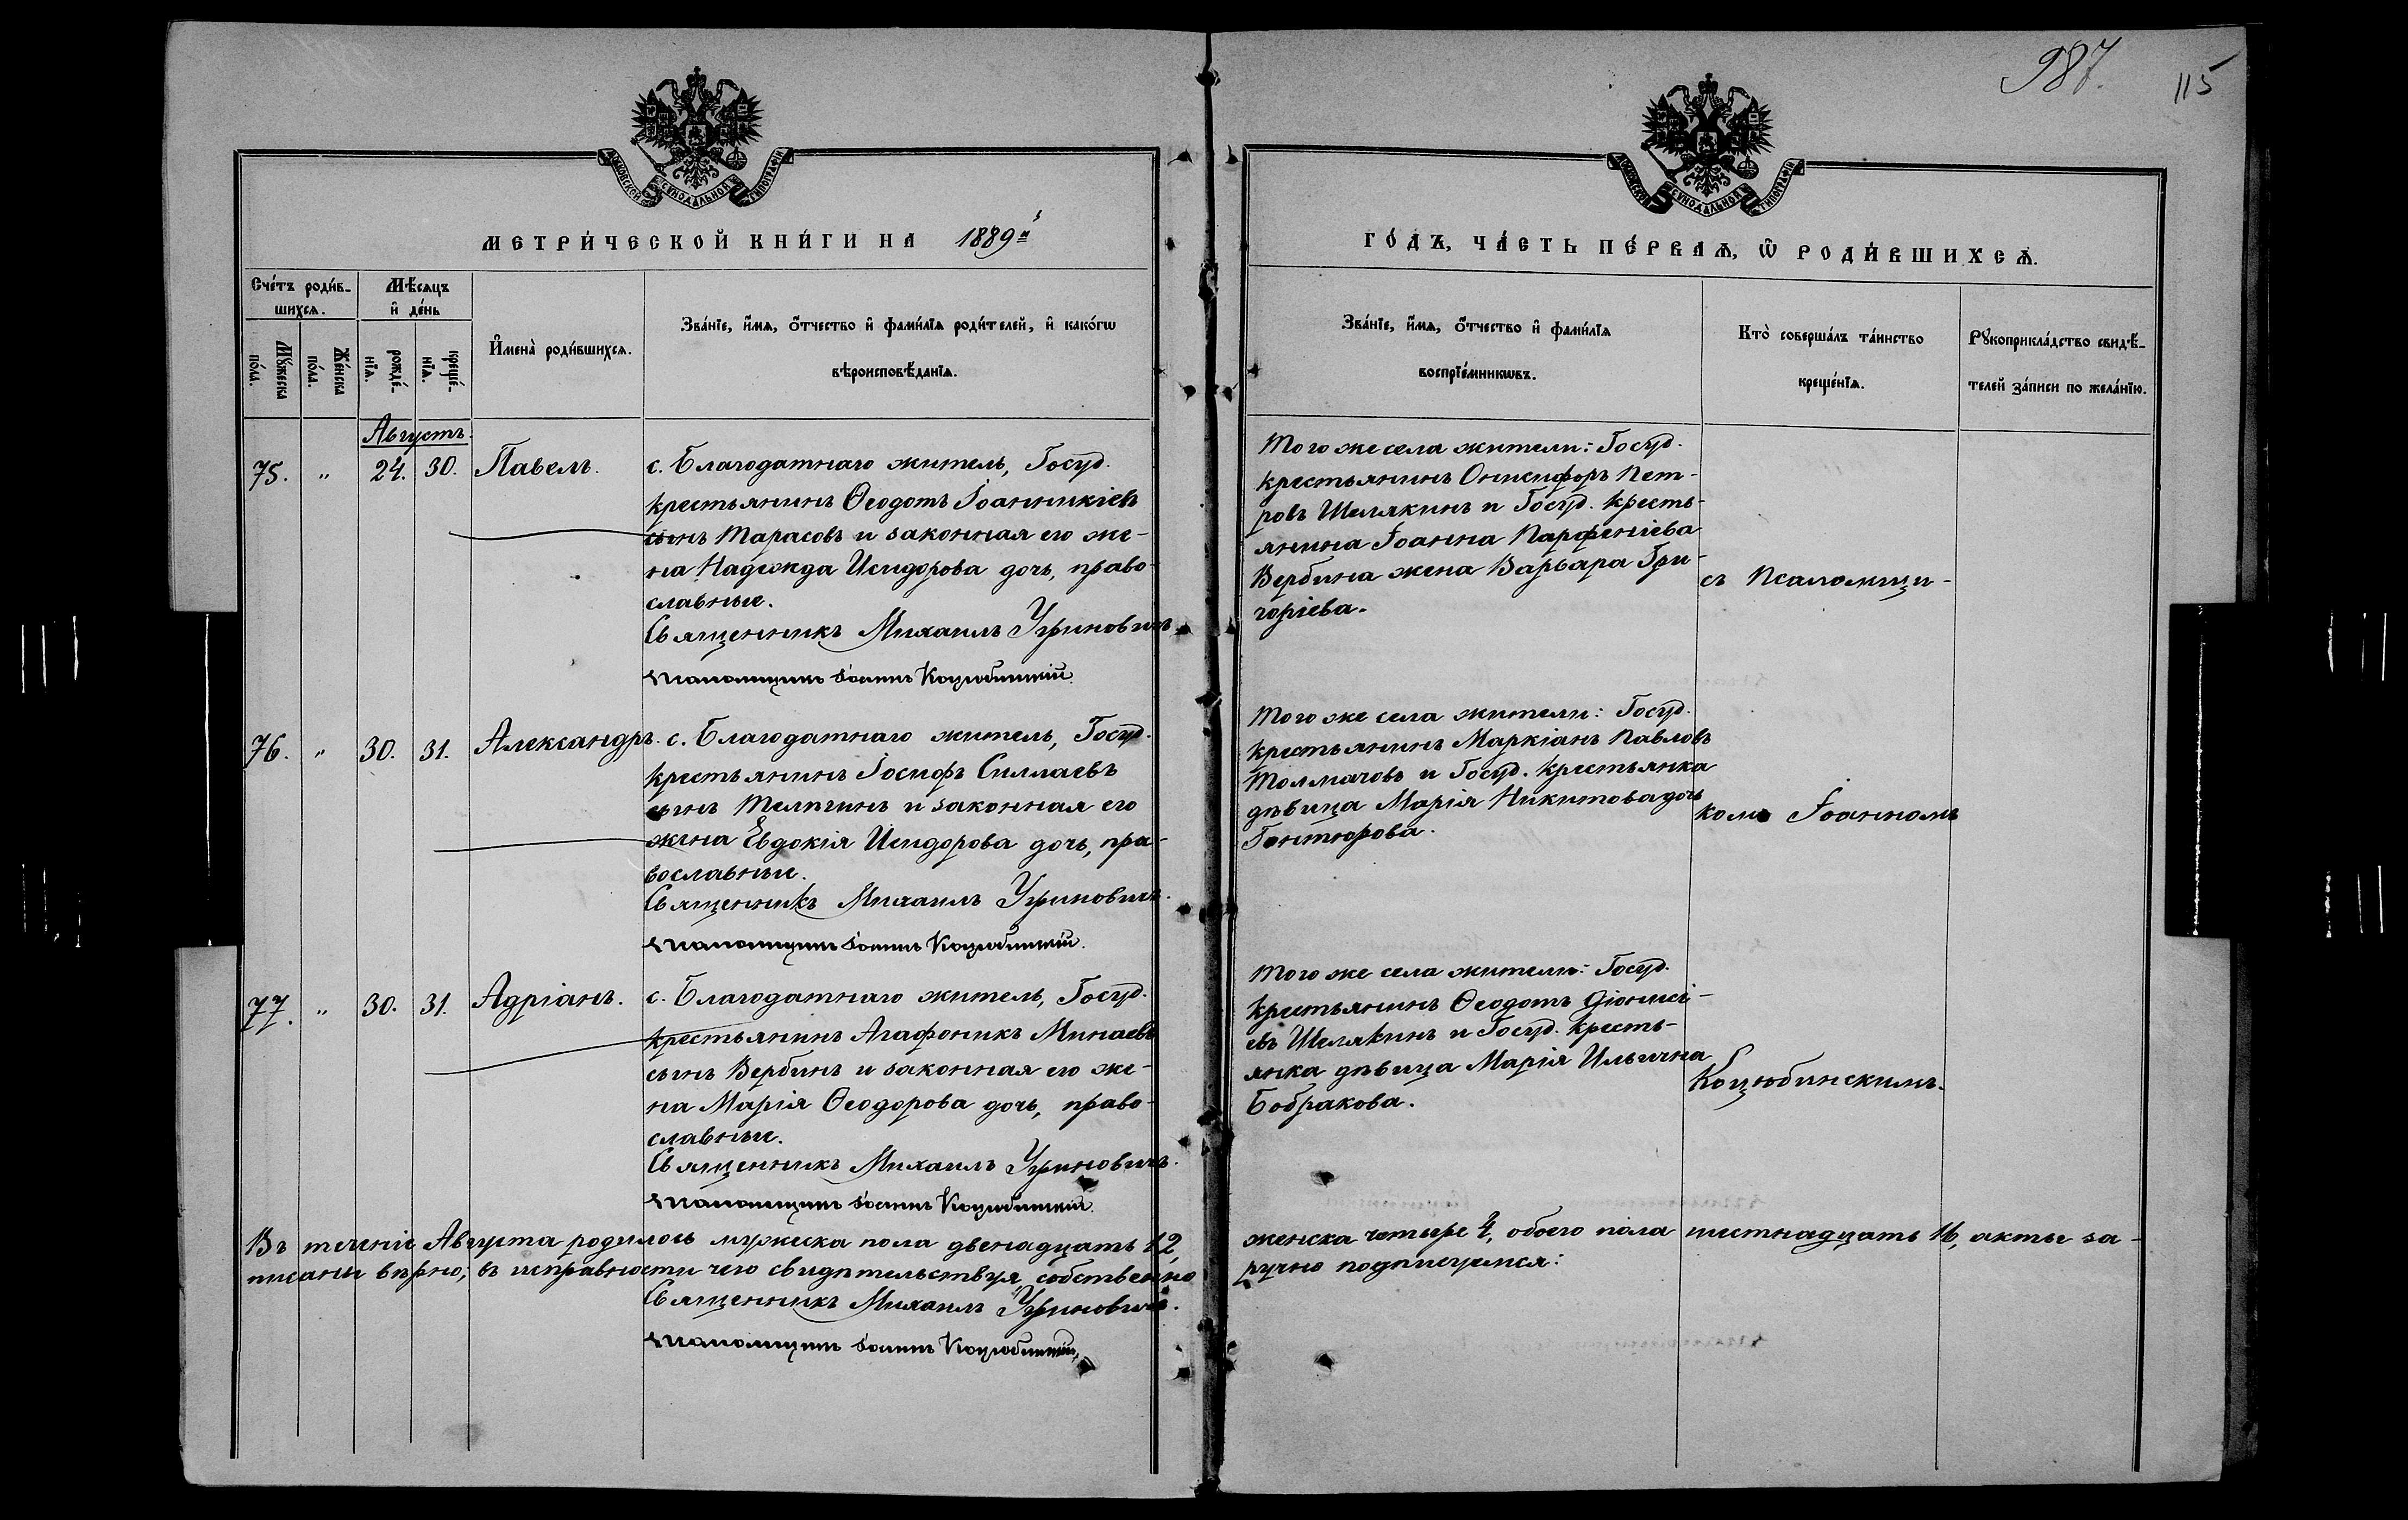 987.
115
МОСКОВСКОЙ СѴНОДАЛЬНОЙ ТИПОГРАФІИ
МОСКОВСКОЙ СѴНОДАЛЬНОЙ ТИПОГРАФІИ
МЕТРИ́ЧЕСКОЙ КНИ́ГИ НА 1889й
ГО́ДЪ, ЧА́СТЬ ПЕ́РВАѦ, Ѿ РОДИ́ВШИХСѦ.
Сче́тъ роди́в-
шихсѧ.
Мѣ́сѧцъ
и҆ де́нь
Мꙋ́жеска
по́ла.
Же́нска
по́ла.
рожде́-
нїѧ.
креще́-
нїѧ.
И҆мена̀ роди́вшихсѧ.
Зва́нїе, и҆́мѧ, ѻ҆́тчество и҆ фами́лїѧ роди́телей, и҆ како́гѡ
вѣроисповѣ́данїѧ.
Зва́нїе, и҆́мѧ, ѻ҆́тчество и҆ фами́лїѧ
воспрїе́мникѡвъ.
Кто̀ соверша́лъ та́инство
креще́нїѧ.
Рꙋкоприкла́дство свидѣ́-
телей за́писи по жела́нїю.
Августъ.
75. " 24. 30. Павелъ. с. Благодатнаго житель, Госуд.
крестьянинъ Ѳеодотъ Іоанникіевъ
сынъ Тарасовъ и законная его же-
на Надежда Исидорова дочь, право-
славные.
Священникъ Михаилъ Угриновичъ
Псаломщикъ Іоаннъ Коцюбинскій.
Того же села жители: Госуд.
крестьянинъ Онисифоръ Пет-
ровъ Шелякинъ и Госуд. кресть-
янина Іоанна Парфеніева
Вербина жена Варвара Гри-
горіева.
съ Псаломщи-
76. " 30. 31. Александръ. с. Благодатнаго житель, Госуд.
крестьянинъ Іосифъ Силлаевъ
сынъ Телпгинъ и законная его
жена Евдокія Исидорова дочь, пра-
вославные.
Священникъ Михаилъ Угриновичъ.
Псаломщикъ Іоаннъ Коцюбинскій.
Того же села жители: Госуд.
крестьянинъ Маркіанъ Павловъ
Толмачовъ и Госуд. крестьянка
дѣвица Марія Никитова дочь
Гонтюрова.
комъ Іоанномъ
77. " 30. 31. Адріанъ. с. Благодатнаго житель, Госуд.
крестьянинъ Агафоникъ Минаевъ
сынъ Вербинъ и законная его же-
на Марія Ѳеодорова дочь, право-
славные.
Священникъ Михаилъ Угриновичъ.
Псаломщикъ Іоаннъ Коцюбинскій.
Того же села жители: Госуд.
крестьянинъ Ѳеодотъ Діонисі-
евъ Шелякинъ и Госуд. кресть-
янка дѣвица Марія Ильична
Бобракова.
Коцюбинскимъ.
Въ теченіе Августа родилось мужеска пола двенадцать 12, женска четыре 4, обоего пола шестнадцать 16, акты за-
писаны вѣрно; въ исправности чего свидѣтельствуя, собственно ручно подписуемся:
Священникъ Михаилъ Угриновичъ.
Псаломщикъ Іоаннъ Коцюбинскій,